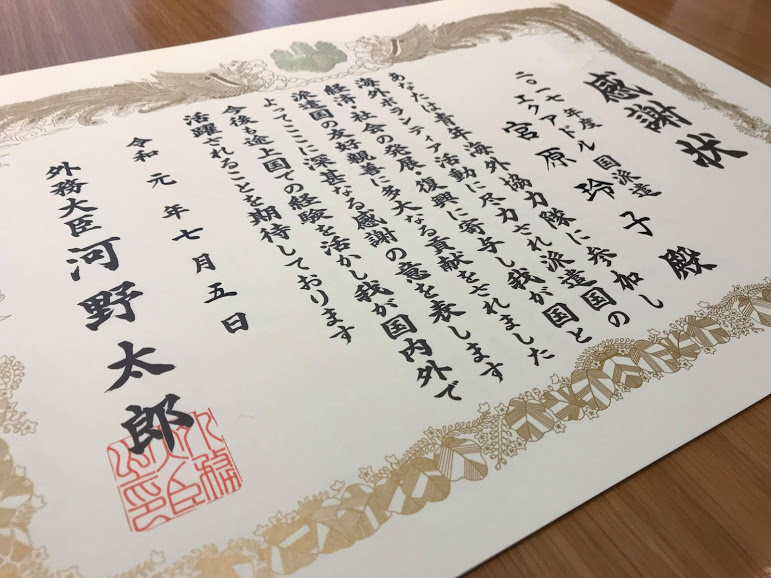 感謝状
二〇一七年度
エクアドル国派遣
宮原玲子殿
あなたは青年海外協力隊に参加し
海外ボランティア活動に尽力され派遣国の
経済・社会の発展・復興に寄与し我が国と
派遣国の友好親善に多大なる貢献をされました
よってここに深甚なる感謝の意を表します
今後も途上国での経験を活かし我が国内外で
活躍されることを期待しております
令和元年七月五日
外務大臣河野太郎
外務大臣之印